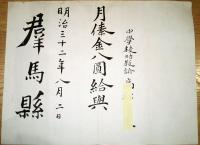 中學校助教諭
月俸金八圓給與
明治三十二年八月二日
群馬縣